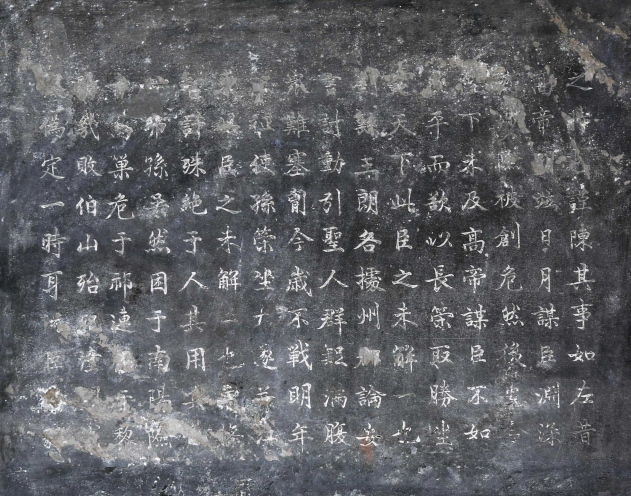 之非謹陳其事如左昔
高帝日月謀臣淵深
險被創危然後安
陛下未及高帝謀臣不如
平而欲以長策取勝坐
定天下此臣之未解一也
劉繇王朗各據州郡論安
言計動引聖人群疑滿腹
眾難塞胷今歲不戰明年
不征使孫策坐大遂并江
臣之未解二也曹操
計殊絕于人其用
彿孫吳然困于南陽險
烏巢危于祁連于黎
幾敗伯山殆死潼
偽定一時耳臣